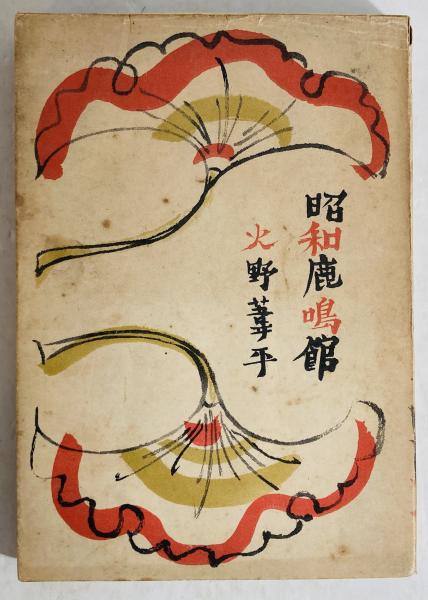 昭和鹿鳴館
火野葦平